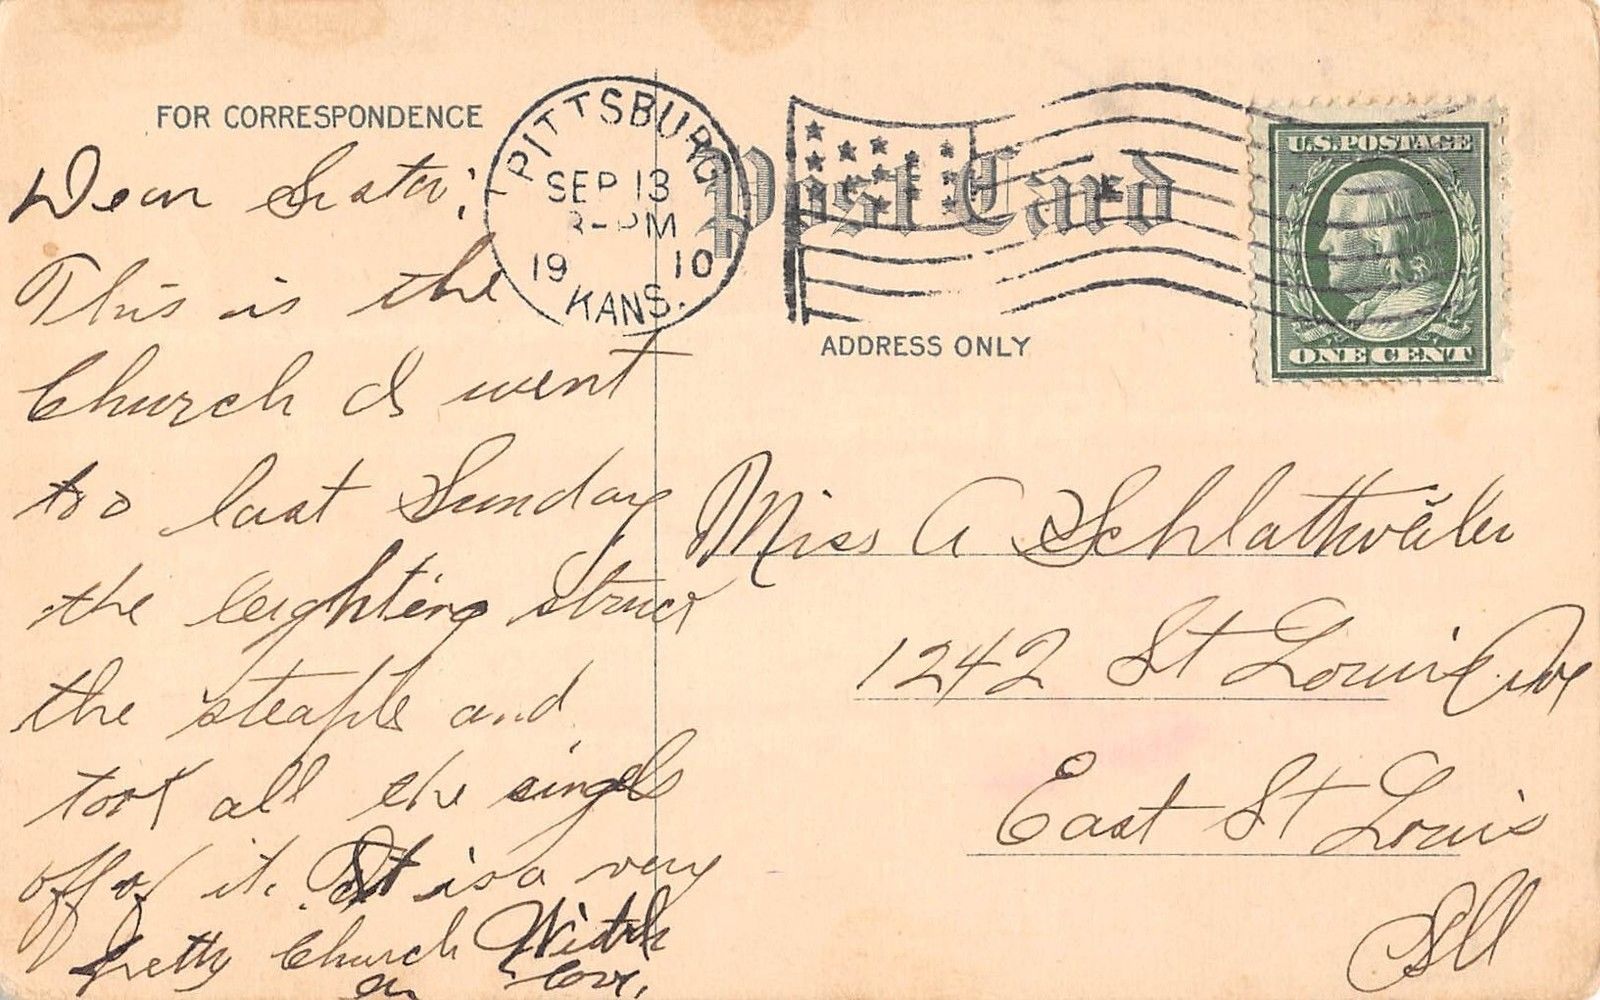 FOR CORRESPONDENCE
PITTSBURG
SEP 13
PM
19 10
KANS.
Post Card
ADDRESS ONLY
U.S. POSTAGE
ONE CENT
Dear Sister;
This is the
Church I went
too last Sunday
the leighting struck
the steaple and
took all the singels
off of it. It is a very
pretty Church With
love,
Miss A Schlattweiler
1242 St Louis Ave
East St Louis
Ill